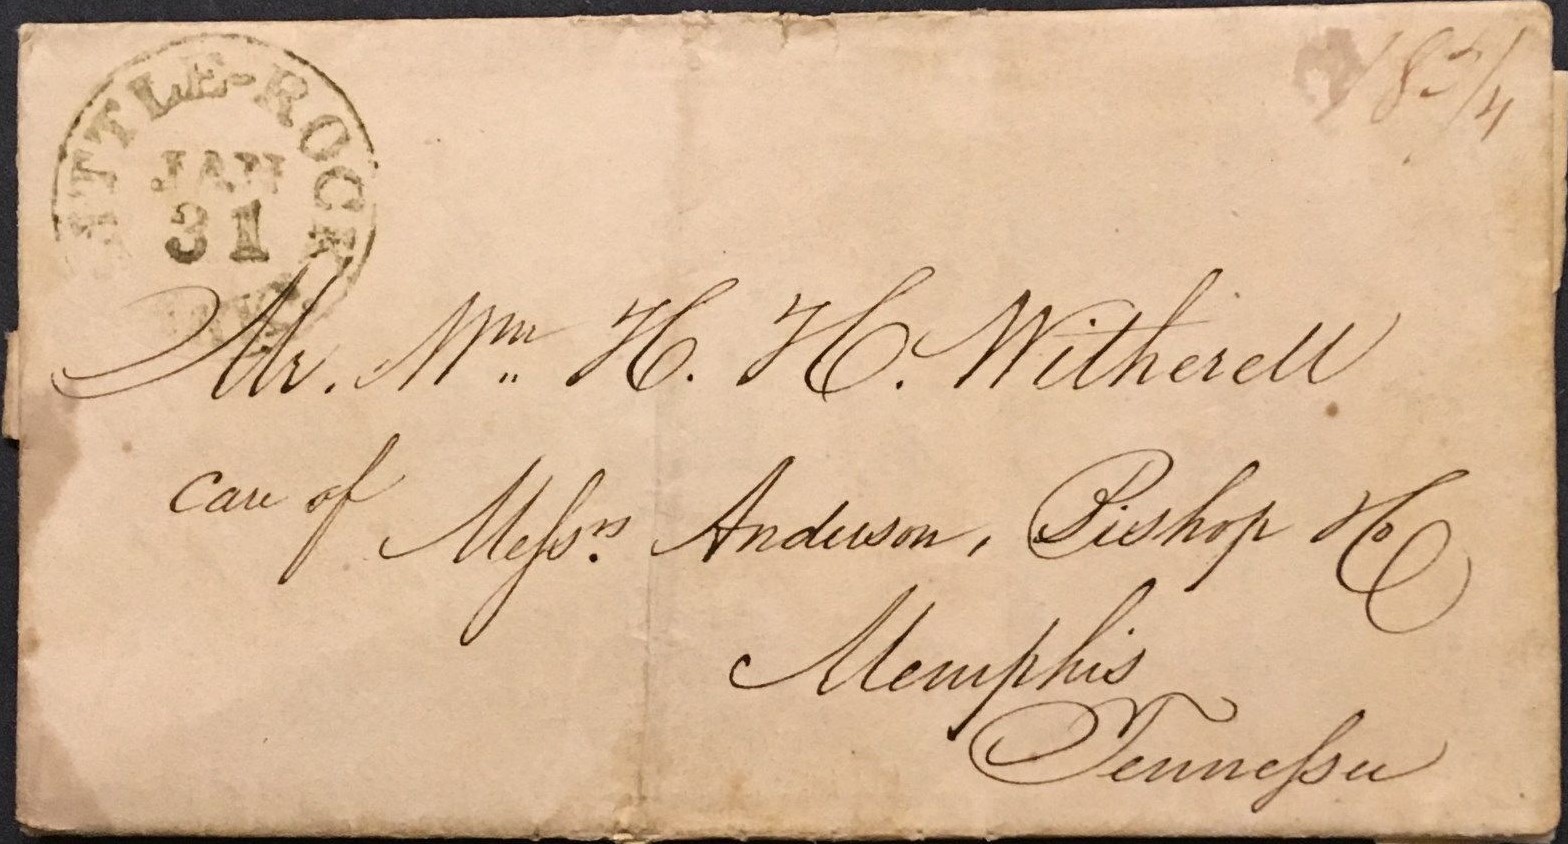 LITTLE-ROCK
JAN
31
ARK.
18 3/4
Mr. Wm. H. H. Witherell
care of Messrs. Anderson, Bishop & Co
Memphis
Tennessee